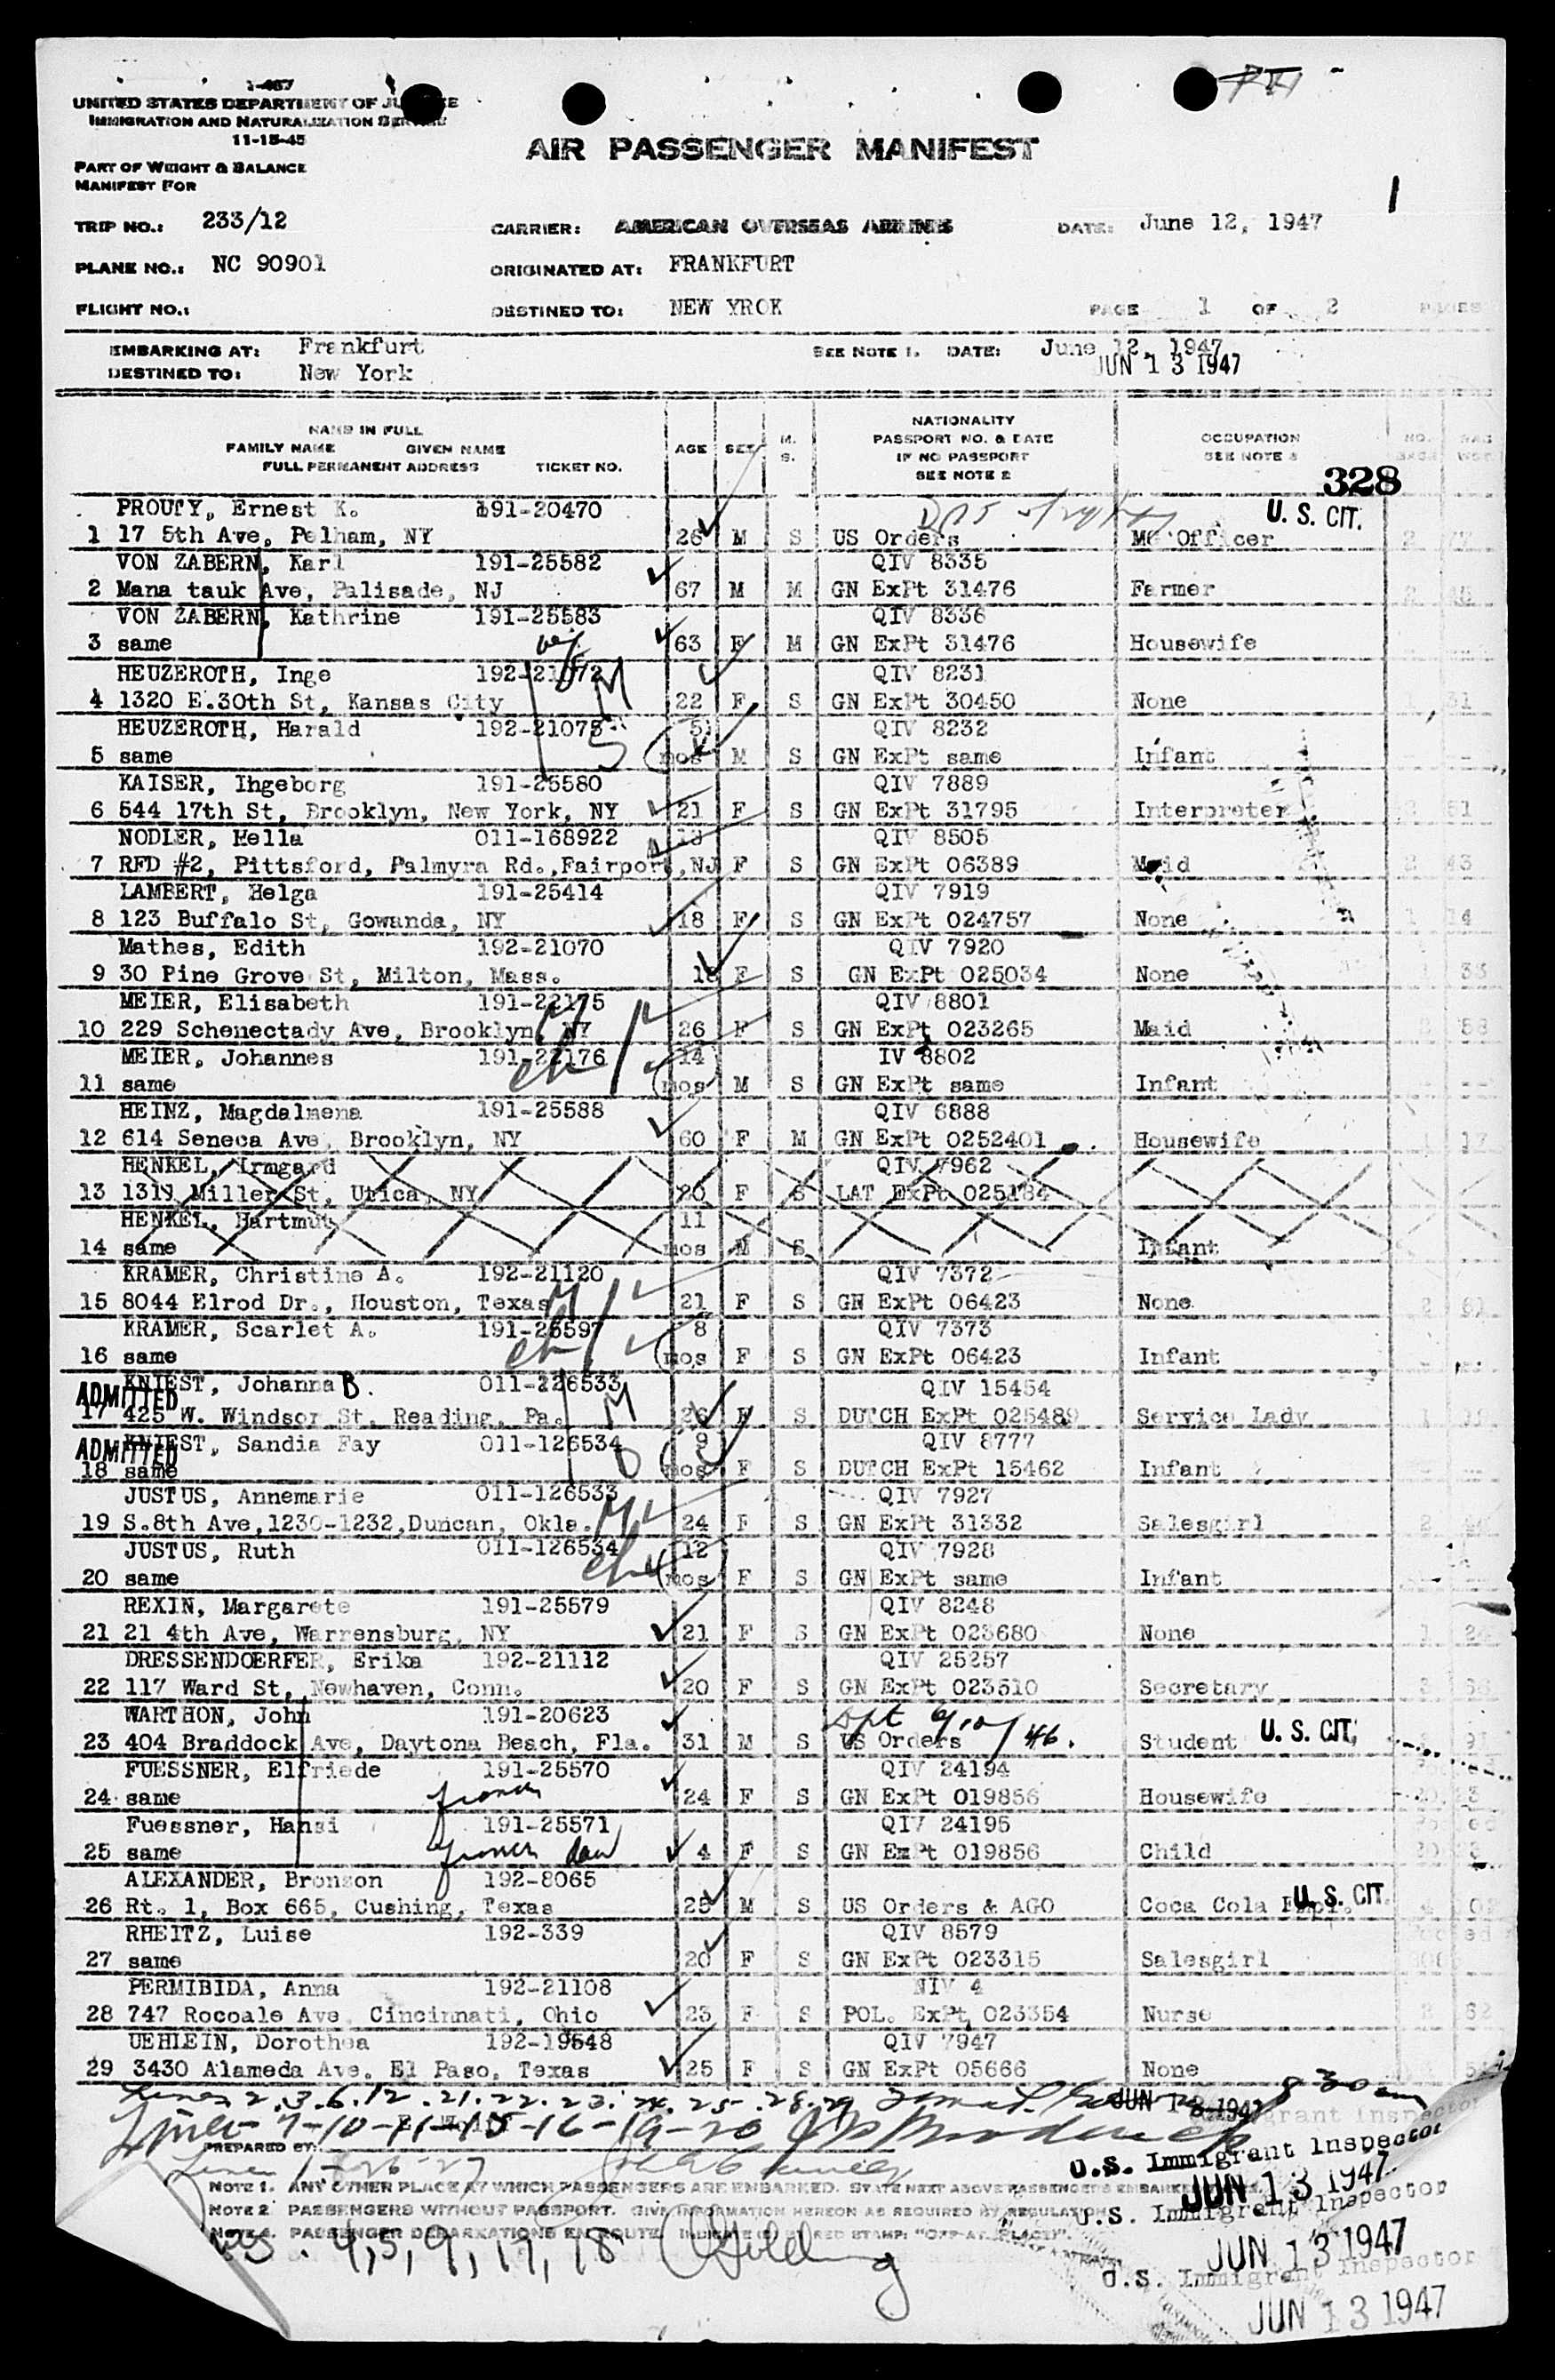 1-467
UNITED STATES DEPARTMENT OF JUSTICE
IMMIGRATION AND NATURALIZATION SERVICE
11-15-45
AIR PASSENGER MANIFEST
PART OF WEIGHT & BALANCE
MANIFEST FOR
1
TRIP NO.: 233/12 CARRIER: AMERICAN OVERSEAS AIRLINES DATE: June 12, 1947
PLANE NO.: NC 90901 ORIGINATED AT: FRANKFURT
FLIGHT NO.: DESTINED TO: NEW YROK PAGE 1 OF 2 PAGES
EMBARKING AT: Frankfurt SEE NOTE 1. DATE: June 12, 1947
DESTINED TO: New York JUN 13 1947
NAME IN FULL
FAMILY NAME GIVEN NAME
FULL PERMANENT ADDRESS TICKET NO.
AGE SEX M. S.
NATIONALITY
PASSPORT NO. & DATE
IF NO PASSPORT
SEE NOTE 2
OCCUPATION
SEE NOTE 3
328
PROUTY, Ernest K. 191-20470 U. S. CIT.
1 17 5th Ave, Pelham, NY 26 M S US Orders Officer
VON ZABERN, Karl 191-25582 QIV 8335
2 Mana tauk Ave, Palisade, NJ 67 M M GN ExPt 31476 Farmer
VON ZABERN, Kathrine 191-25583 QIV 8336
3 same 63 F M GN ExPt 31476 Housewife
HEUZEROTH, Inge 192-21072 QIV 8231
4 1320 E.30th St, Kansas City 22 F S GN ExPt 30450 None
HEUZEROTH, Harald 192-21073 5 QIV 8232
5 same mos M S GN ExPt same Infant
KAISER, Ihgeborg 191-25580 QIV 7889
6 544 17th St, Brooklyn, New York, NY 21 F S GN ExPt 31795 Interpreter
NODLER, Hella 011-168922 QIV 8505
7 RFD #2, Pittsford, Palmyra Rd.,Fairport,NJ F S GN ExPt 06389 Maid
LAMBERT, Helga 191-25414 QIV 7919
8 123 Buffalo St, Gowanda, NY 18 F S GN ExPt 024757 None
Mathes, Edith 192-21070 QIV 7920
9 30 Pine Grove St, Milton, Mass. 18 F S GN ExPt 025034 None
MEIER, Elisabeth 191-22175 QIV 8801
10 229 Schenectady Ave, Brooklyn, NY 26 F S GN ExPt 023265 Maid
MEIER, Johannes 191-22176 14 IV 8802
11 same mos M S GN ExPt same Infant
HEINZ, Magdalmena 191-25588 QIV 6888
12 614 Seneca Ave, Brooklyn, NY 60 F M GN ExPt 0252401 Housewife
HENKEL, Irmgard QIV 7962
13 1319 Miller St, Utica, NY 20 F S LAT ExPt 025184
HENKEL, Hartmut 11
14 same mos M S Infant
KRAMER, Christine A. 192-21120 QIV 7372
15 8044 Elrod Dr., Houston, Texas 21 F S GN ExPt 06423 None
KRAMER, Scarlet A. 191-25597 8 QIV 7373
16 same mos F S GN ExPt 06423 Infant
ADMITTED KNIEST, Johanna B. 011-226533 QIV 15454
17 425 W. Windsor St, Reading, Pa. M 26 F S DUTCH ExPt 025489 Service Lady
ADMITTED KNIEST, Sandia Fay 011-126534 9 QIV 8777
18 same mos F S DUTCH ExPt 15462 Infant
JUSTUS, Annemarie 011-126533 QIV 7927
19 S.8th Ave,1230-1232,Duncan, Okla. 24 F S GN ExPt 31332 Salesgirl
JUSTUS, Ruth 011-126534 12 QIV 7928
20 same mos F S GN ExPt same Infant
REXIN, Margarete 191-25579 QIV 8248
21 21 4th Ave, Warrensburg, NY 21 F S GN ExPt 023680 None
DRESSENDOERFER, Erika 192-21112 QIV 25257
22 117 Ward St, Newhaven, Conn. 20 F S GN ExPt 023510 Secretary
WARTHON, John 191-20623
23 404 Braddock Ave, Daytona Beach, Fla. 31 M S US Orders Student U. S. CIT.
FUESSNER, Elfriede 191-25570 QIV 24194
24 same 24 F S GN ExPt 019856 Housewife
Fuessner, Hansi 191-25571 QIV 24195
25 same 4 F S GN ExPt 019856 Child
ALEXANDER, Bronson 192-8065
26 Rt. 1, Box 665, Cushing, Texas 25 M S US Orders & AGO Coca Cola Empl. U. S. CIT.
RHEITZ, Luise 192-339 QIV 8579
27 same 20 F S GN ExPt 023315 Salesgirl
PERMIBIDA, Anna 192-21108 NIV 4
28 747 Rocoale Ave, Cincinnati, Ohio 23 F S POL. ExPt 023354 Nurse
UEHLEIN, Dorothea 192-19548 QIV 7947
29 3430 Alameda Ave. El Paso, Texas 25 F S GN ExPt 05666 None
Lines 2.3.6.12.21.22.23.24.25.28.29
Lines 7-10-11-15-16-19-20
U.S. Immigrant Inspector
PREPARED BY:
JUN 13 1947
NOTE 1. ANY OTHER PLACE AT WHICH PASSENGERS ARE EMBARKED. STATE NEXT ABOVE PASSENGERS EMBARKED
NOTE 2 PASSENGERS WITHOUT PASSPORT. GIVE INFORMATION HEREON AS REQUIRED BY REGULATIONS
U.S. Immigrant Inspector
PASSENGER DEBARKATIONS EN ROUTE. INDICATE BY RED STAMP: "OFF-AT (PLACE)".
4, 5, 9, 17, 18 Golding
JUN 13 1947
U.S. Immigrant Inspector
JUN 13 1947